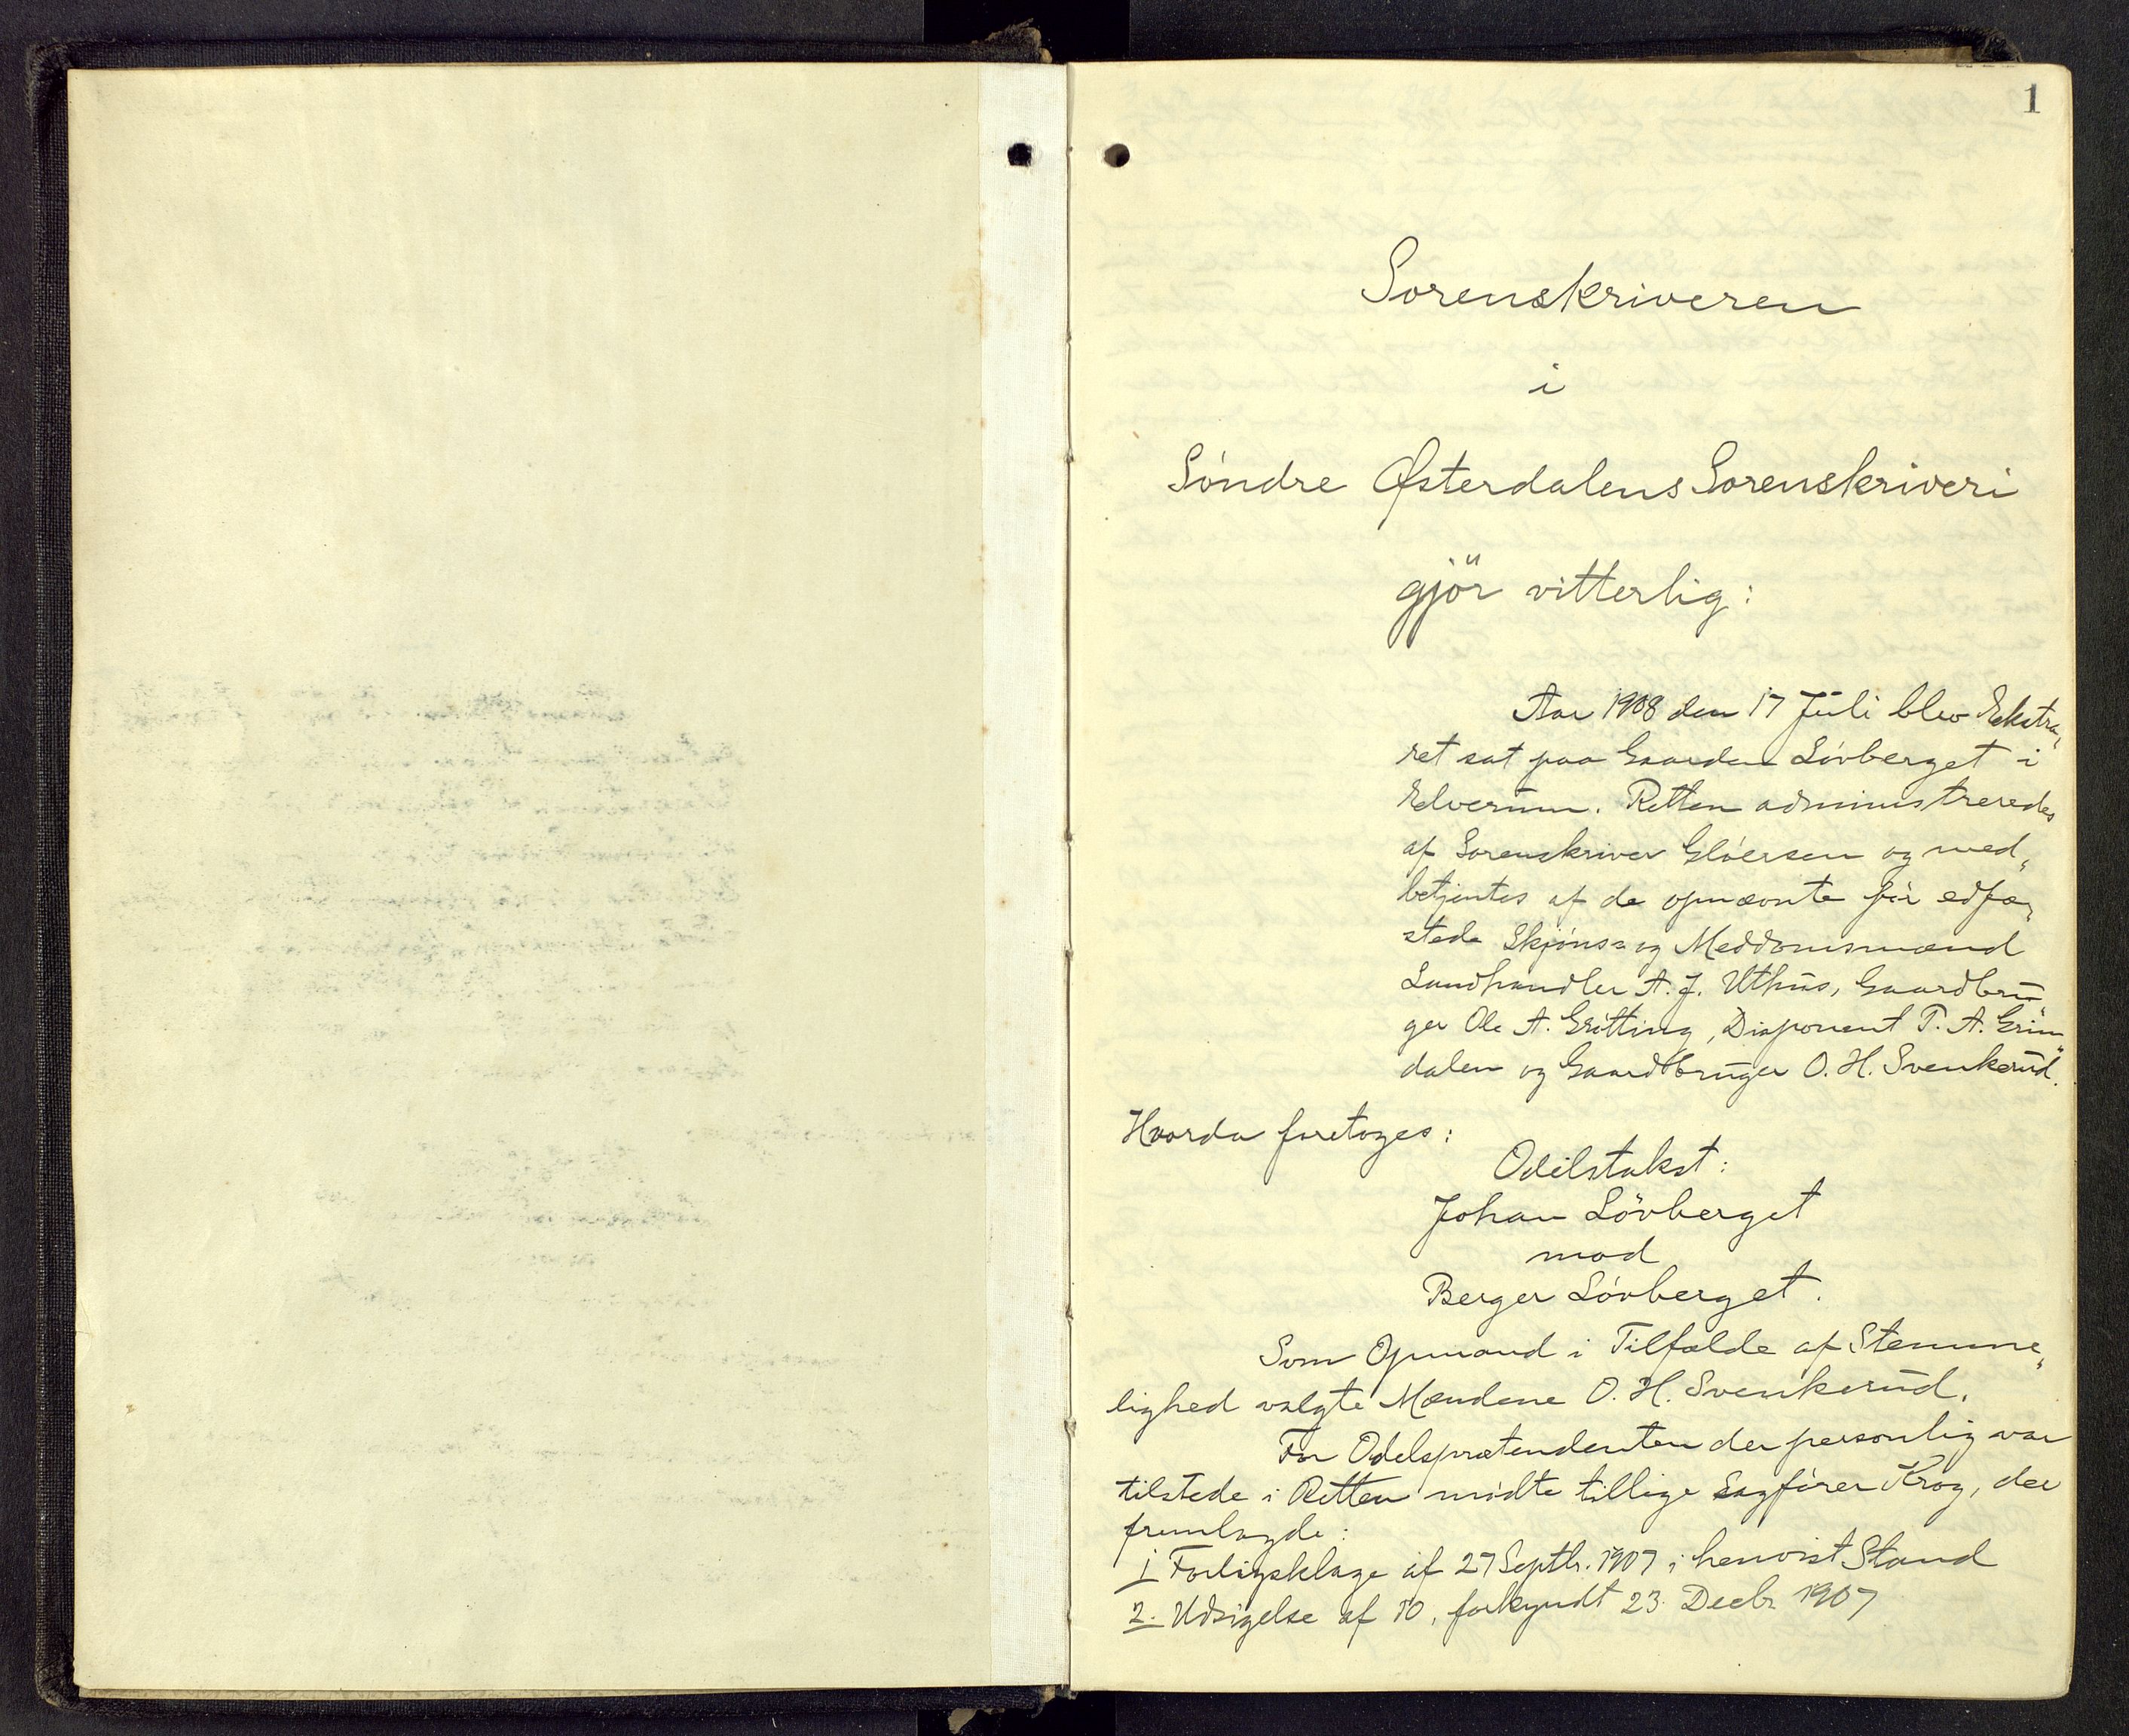 1
Sorenskriveren
i
Söndre Østerdalens Sorenskriveri
gjör vitterlig:
Aar 1908 den 17 Juli blev Ekstra„
ret sat paa Gaarden Lövberget i
Elverum. Retten administreredes
af Sorenskriver Glöersen og med„
betjentes af de opnævnte för edfæ„
stede Skjöns= og Meddomsmænd
Landhandler A. J. Uthus, Gaardbru„
ger Ole A. Grötting, Disponent T. A. Grin„
dalen og Gaardbruger O. H. Svenkerud.
Hvorda foretoges:
Odelstakst:
Johan Lövberget
mod
Berger Lövberget.
Som Opmand i Tilfælde af Stemme„
lighed valgte Mændene O. H. Svenkerud.
For Odelsprætendenten der personlig var
tilstede i Retten mödte tillige Sagförer Krog, der
fremlagde:
1 Forligsklage af 27 Septbr. 1907 i henvist Stand
2. Udsigelse af 10, forkyndt 23. Decbr 1907